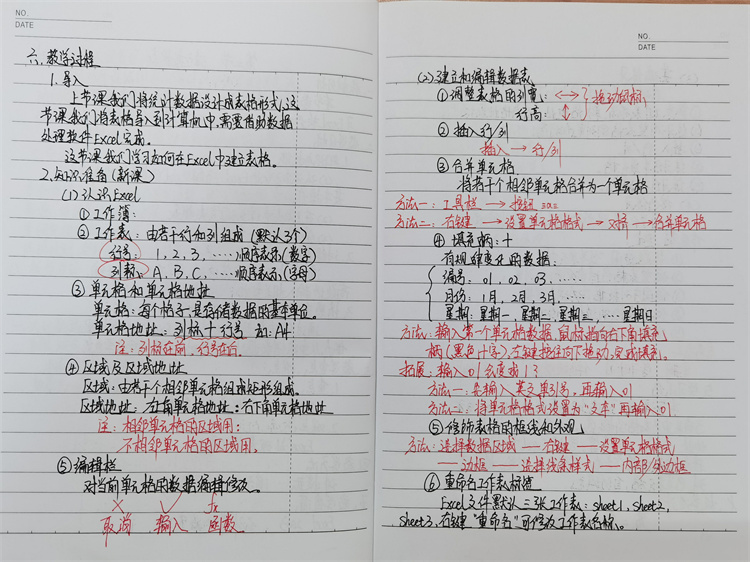 NO.
DATE
六、教学过程
1.导入
上节课我们将统计数据设计成表格形式,这
节课我们将表格导入到计算机中,需要借助数据
处理软件Excel完成。
这节课我们学习如何在Excel中建立表格。
2.知识准备(新课)
(1)认识Excel
①工作簿:
②工作表:由若干行和列组成(默认3个)
行号:1,2,3,……顺序表示(数字)
列标:A,B,C,……顺序表示(字母)
③单元格和单元格地址
单元格:每个格子,是存储数据的基本单位。
单元格地址:列标+行号 如:A4
注:列标在前,行号在后。
④区域及区域地址
区域:由若干个相邻单元格组成矩形组成。
区域地址:左上角单元格地址:右下角单元格地址
注:相邻单元格的区域用:
不相邻单元格的区域用,
⑤编辑栏
对当前单元格的数据编辑修改。
× √ fx
取消 输入 函数
NO.
DATE
(2)建立和编辑数据表
①调整表格的列宽:↔ 拖动鼠标
行高:↕
②插入行/列
插入→行/列
③合并单元格
将若干个相邻单元格合并为一个单元格
方法一:工具栏→按钮
方法二:右键→设置单元格格式→对齐→合并单元格
④填充柄:十
有规律变化的数据:
编号:01,02,03,……
月份:1月,2月,3月,……
星期:星期一,星期二,星期三,……星期日
方法:输入第一个单元格数据,鼠标指向右下角填充
柄(黑色十字),左键拖住向下拖动,完成填充。
拓展:输入01会变成1?
方法一:先输入英文单引号,再输入01
方法二:将单元格格式设置为"文本"再输入01.
⑤修饰表格的框线和外观
方法:选择数据区域—右键—设置单元格格式
—边框—选择线条样式—内部/外边框
⑥重命名工作表标签
Excel文件默认三张工作表:sheet1,sheet2,
sheet3,右键"重命名"可修改工作表名称。